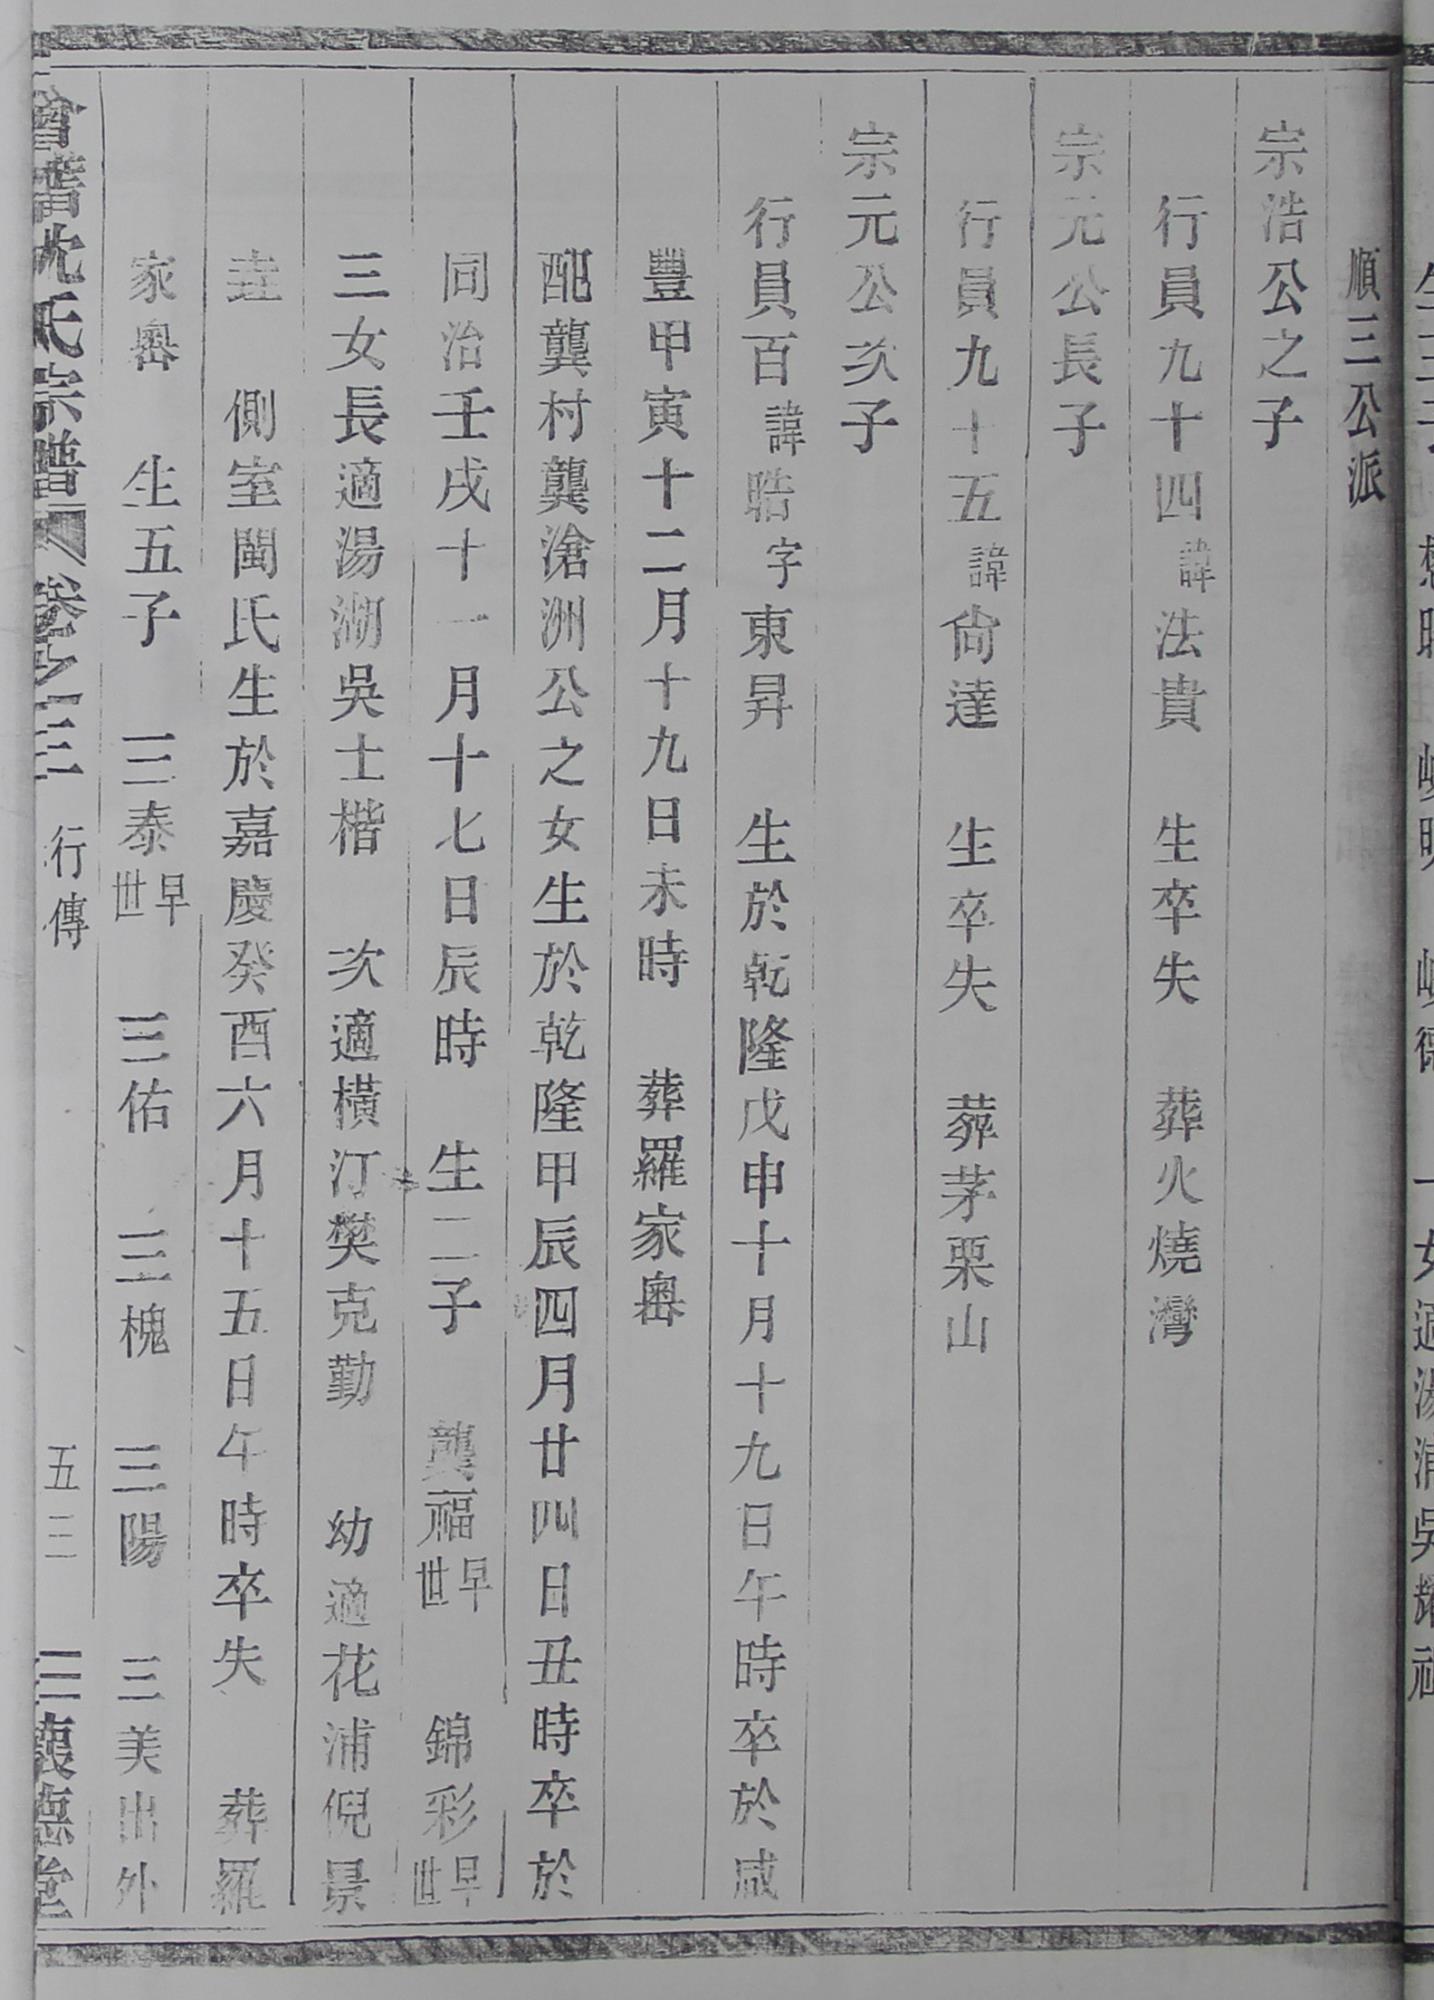 順三公派
宗浩公之子
行員九十四諱法貴　生卒失　葬火燒灣
宗元公長子
行員九十五諱尙達　生卒失　葬茅栗山
宗元公次子
行員百諱晧字東昇　生於乾隆戊申十月十九日午時卒於咸
豐甲寅十二月十九日未時　葬羅家嶴
配龔村龔滄洲公之女生於乾隆甲辰四月廿四日丑時卒於
同治壬戌十一月十七日辰時　生二子　龔福早世　錦彩早世
三女長適湯湖吳士楷　次適橫汀樊克勤　幼適花浦倪景
垚　側室閩氏生於嘉慶癸酉六月十五日午時卒失　葬羅
家嶴　生五子　三泰早世　三佑　三槐　三陽　三美出外
會稽沈氏宗譜　卷之三　行傳　五三　三懷德堂